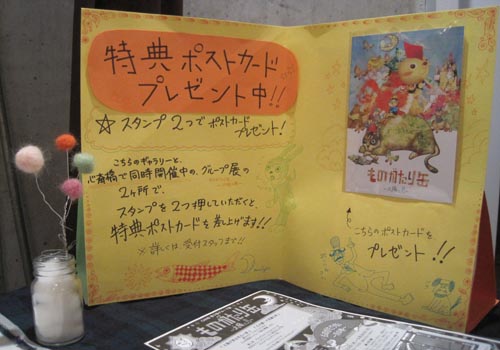 特典 ポストカード
プレゼント中!!
☆ スタンプ 2つで ポストカード
プレゼント!
こちらのギャラリーと、
心斎橋で同時開催中の、グループ展の
2ヶ所で、
スタンプを2つ押していただくと、
特典ポストカードを差上げます!!
※詳しくは受付スタッフまで!!
ものがたり缶
こちらのポストカードを
プレゼント!!
ものがたり缶